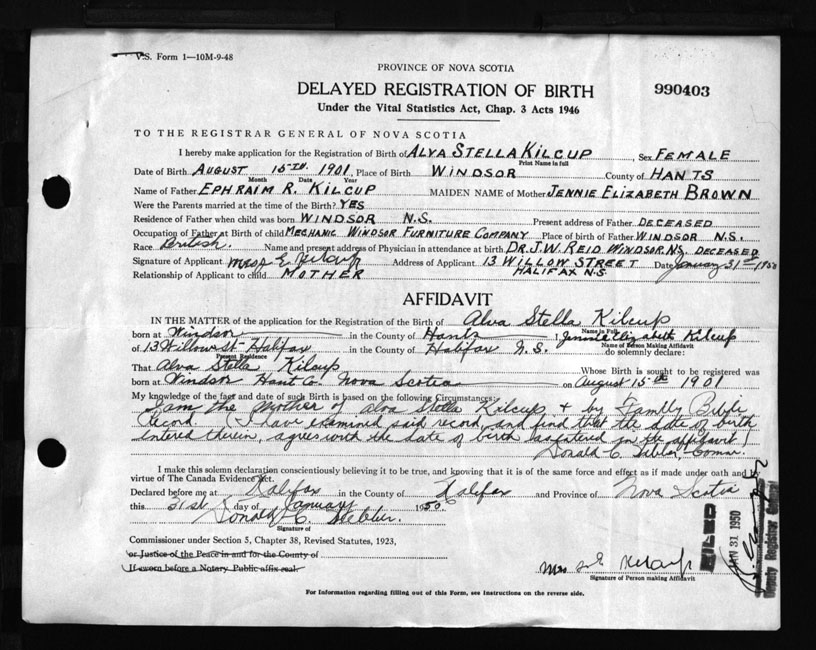 V.S. Form 1—10M-9-48
PROVINCE OF NOVA SCOTIA
DELAYED REGISTRATION OF BIRTH
990403
Under the Vital Statistics Act, Chap. 3 Acts 1946
TO THE REGISTRAR GENERAL OF NOVA SCOTIA
I hereby make application for the Registration of Birth of ALVA STELLA KILCUP, Sex FEMALE
Print Name in full
Date of Birth AUGUST 15TH. 1901, Place of Birth WINDSOR County of HANTS
Month Date Year
Name of Father EPHRAIM R. KILCUP MAIDEN NAME of Mother JENNIE ELIZABETH BROWN
Were the Parents married at the time of the Birth? YES
Residence of Father when child was born WINDSOR N.S. Present address of Father DECEASED
Occupation of Father at Birth of child MECHANIC WINDSOR FURNITURE COMPANY Place of birth of Father WINDSOR N.S.
Race British. Name and present address of Physician in attendance at birth DR. J.W. REID WINDSOR, N.S. DECEASED
Signature of Applicant Mrs E Kilcup Address of Applicant 13 WILLOW STREET Date January 31st 1950
Relationship of Applicant to child MOTHER HALIFAX N.S
AFFIDAVIT
IN THE MATTER of the application for the Registration of the Birth of Alva Stella Kilcup
Name in Full
born at Windsor in the County of Hants I, Jennie Elizabeth Kilcup
Name of Person Making Affidavit
of 13 Willow St- Halifax in the County of Halifax N.S. do solemnly declare:
Present Residence
That Alva Stella Kilcup Whose Birth is sought to be registered was
born at Windsor Hant Co. Nova Scotia on August 15th 1901
My knowledge of the fact and date of such Birth is based on the following Circumstances:
I am the Mother of Alva Stella Kilcup & by Family Bible
Record. (I have examined said record and find that the date of birth
entered therein, agrees with the date of birth as entered in the affidavit)
Donald C. Comm.
I make this solemn declaration conscientiously believing it to be true, and knowing that it is of the same force and effect as if made under oath and by
virtue of The Canada Evidence Act.
Declared before me at Halifax in the County of Halifax and Province of Nova Scotia
this 31st day of January 1950
Donald C.
Signature of
Commissioner under Section 5, Chapter 38, Revised Statutes, 1923,
or Justice of the Peace in and for the County of
If sworn before a Notary Public affix seal.
Mrs E Kilcup
Signature of Person making Affidavit
FILED
JAN 31 1950
Deputy Registrar General
For Information regarding filling out of this Form, see Instructions on the reverse side.